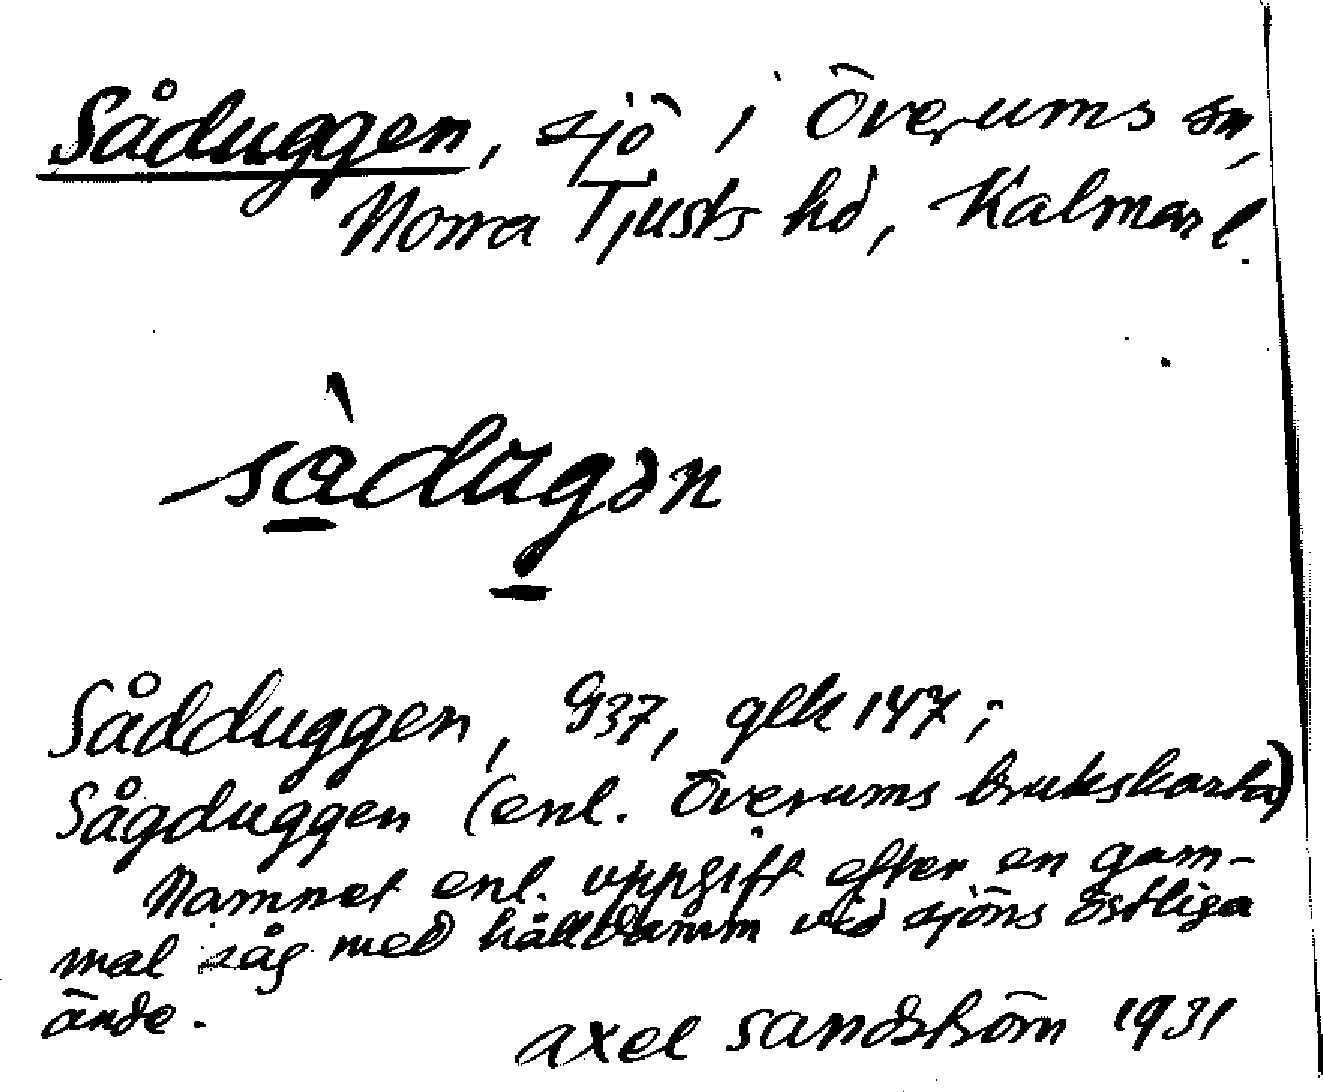 Såduggen, sjö i Överums sn,
Norra Tjusts hd, Kalmar l.
sàdugən
Sådduggen, G37, glk 147;
Sågduggen (enl. Överums brukskarta)
Namnet enl. uppgift efter en gam-
mal såg med hålldamm vid sjöns östliga
ände.
Axel Sandström 1931